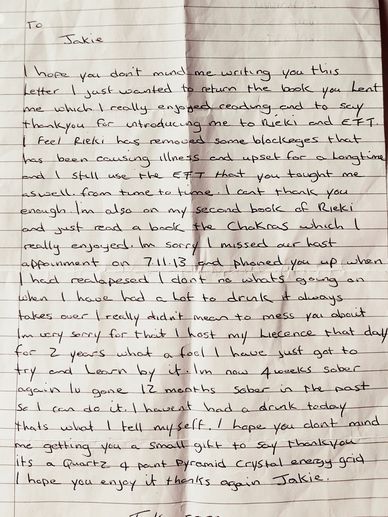 To
Jakie
I hope you don't mind me writing you this
letter I just wanted to return the book you lent
me which I really enjoyed reading and to say
thankyou for introducing me to Rieki and EFT.
I feel Rieki has removed some blockeges that
has been causing illness and upset for a longtime
and I still use the EFT that you taught me
aswell. from time to time. I cant thank you
enough. Im also on my second book of Rieki
and just read a book the Chakras which I
really enjoyed. Im sorry I missed our last
appoinment on 7.11.13 and phoned you up when
I had realapesed I dont no whats going on
when I have had a lot to drink it always
takes over I really didn't mean to mess you about
Im very sorry for that I lost my Liecence that day
for 2 years what a fool I have just got to
try and learn by it. Im now 4 weeks sober
again Iv gone 12 months sober in the past
so I can do it. I havent had a drink today
thats what I tell myself. I hope you dont mind
me getting you a small gift to say thankyou
its a Quartz 4 point Pyramid Crystal energy grid
I hope you enjoy it thanks again Jakie.